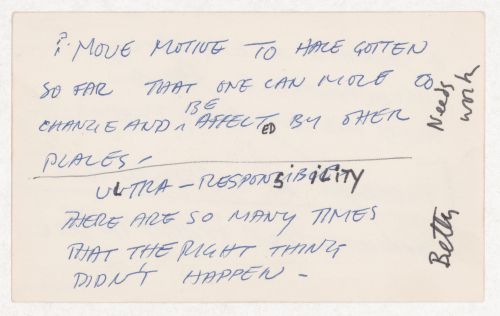 ? MOVE MOTIVE TO HAVE GOTTEN
SO FAR THAT ONE CAN MOVE TO
CHANGE AND BE AFFECTED BY OTHER
PLACES -
ULTRA - RESPONSIBILITY
THERE ARE SO MANY TIMES
THAT THE RIGHT THING
DIDN'T HAPPEN -
Betty
Needs
work